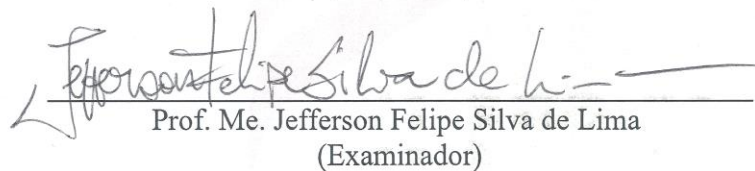 Jefferson Felipe Silva de Lima
Prof. Me. Jefferson Felipe Silva de Lima
(Examinador)